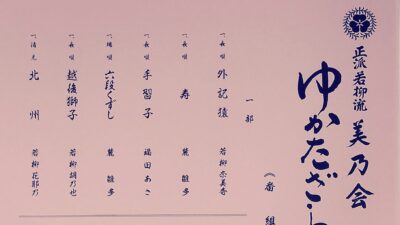 正派若柳流 美乃会
ゆかたざらい
《番組
一部
一、長唄 外記猿 若柳奈美香
一、長唄 寿 麓雅多
一、長唄 手習子 福田あさ
一、端唄 六段くずし 麓雅多
一、長唄 越後獅子 若柳胡乃也
一、清元 北州 若柳花耶乃